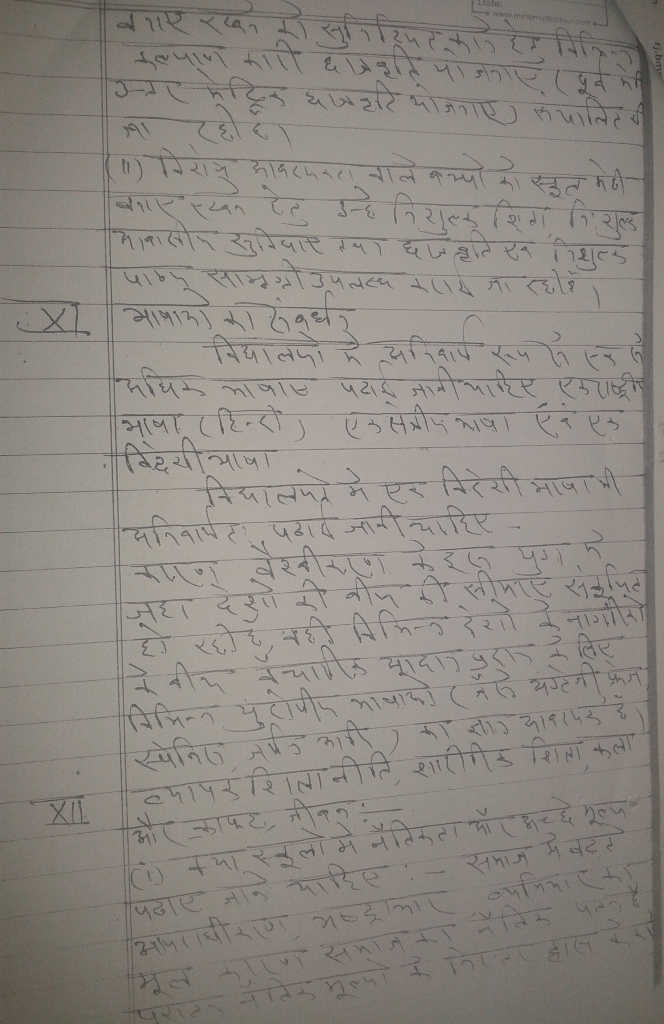 बनाए रखने को सुनिश्चित करने हेतु विभिन्न
कल्याणकारी छात्रवृत्ति योजनाएं (पूर्व
उत्तर मैट्रिक छात्रवृत्ति योजनाएं) संचालित की
जा रही हैं।
(ii) विशेष आवश्यकता वाले बच्चों को स्कूल में
बनाए रखने हेतु उन्हें निशुल्क शिक्षा, नि:शुल्क
आवासीय सुविधाएं तथा छात्रवृत्ति एवं निशुल्क
पाठ्य सामग्री उपलब्ध कराई जा रही है।
XI भाषाओं का संवर्धन
विद्यालयों में अनिवार्य रूप से एक से
अधिक भाषाएं पढाई जानी चाहिए एक राष्ट्रीय
भाषा (हिन्दी) एक क्षेत्रीय भाषा एवं एक
विदेशी भाषा
विद्यालयों में एक विदेशी भाषा भी
अनिवार्यत: पढाई जानी चाहिए -
कारण वैश्वीकरण के इस युग में
जहां देशों की बीच की सीमाएं संकुचित
हो रही है, वही विभिन्न देशों के नागरिकों
के बीच वैचारिक आदान प्रदान के लिए
विभिन्न युरोपीय भाषाओं (जैसे अंग्रेजी, फ्रेंच,
स्पेनिश, जर्मन आदि) का ज्ञान आवश्यक है।
XII व्यापक शिक्षा नीति, शारीरिक शिक्षा, कला
और क्राफ्ट, जीवन :-
(i) क्या स्कूलों में नैतिकता और अच्छे मूल्य
पढाए जाने चाहिए :- समाज में बढते
अपराधीकरण, भ्रष्टाचार, व्यभिचार का
मूल कारण समाज का नैतिक पतन है
नैतिक मूल्यों के